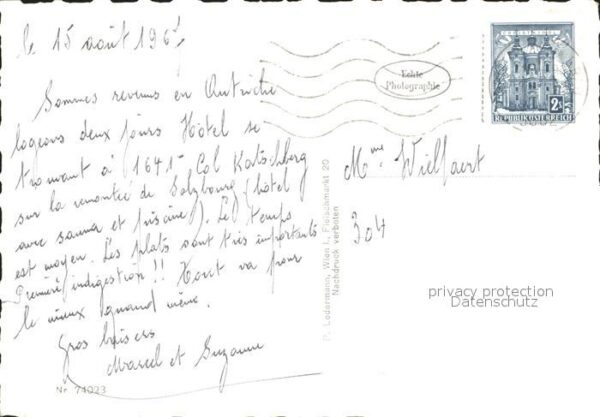 le 15 août 196
Sommes revenus en Autriche
logeons deux jours Hôtel se
trouvant à 1641m Col Katschberg
sur la remontée de Salzbourg (hôtel
avec sauna et piscine). Le temps
est moyen. Les plats sont très importants
Première indigestion !! Tout va pour
le mieux quand même.
Gros baisers
Marcel et Suzanne
Nr. 74023
P. Ledermann, Wien I., Fleischmarkt 20
Nachdruck verboten
Echte
Photographie
CHRISTKINDL
2S
REPUBLIK ÖSTERREICH
Mme Wielfaert
304
privacy protection
Datenschutz